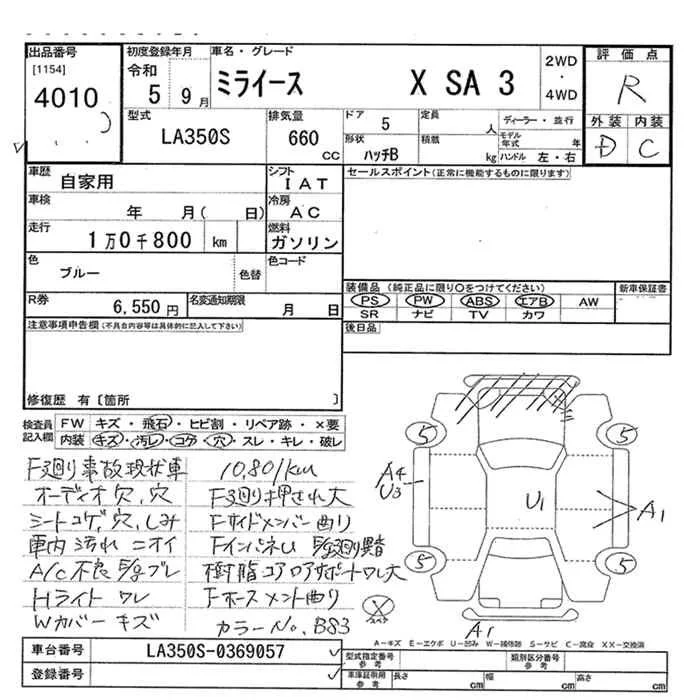 出品番号
[1154]
4010
初度登録年月
令和 5 9月
車名・グレード
ミライース X SA 3
2WD・4WD
評価点
R
外装 内装
D C
型式
LA350S
排気量
660 cc
ドア 5
形状 ハッチB
定員 人
積載 kg
ディーラー・並行
モデル年式 年
ハンドル 左・右
車歴 自家用
車検 年 月( 日)
走行 1万0千800 km
シフト IAT
冷房 AC
燃料 ガソリン
色 ブルー 色替
色コード
R券 6,550円
名変通知期限 月 日
セールスポイント(正常に機能するものに限ります)
装備品 (純正品に限り○をつけてください)
新車保証書
PS PW ABS エアB AW
SR ナビ TV カワ
後日品
注意事項申告欄(不具合内容等は具体的に記入して下さい)
修復歴 有〔箇所 〕
検査員記入欄
FW キズ・飛石・ヒビ割・リペア跡・×要
内装 キズ・汚レ・コゲ・穴・スレ・キレ・破レ
F廻り事故現状車
オーディオ欠,穴
シートコゲ,穴,しみ
車内汚れ ニオイ
A/C不良
Hライト ワレ
Wカバーキズ
10,801km
F廻り押され大
Fサイドメンバー曲り
Fインパネ
樹脂コアロアサポートワレ大
Fホースメント曲り
カラーNo,B83
5 5
A4
U3
U1
A1
5 5
A1
スペア
A−キズ E−エクボ U−凹み W−補修跡 S−サビ C−腐食 XX−交換済
車台番号 LA350S-0369057
登録番号
型式指定番号 参考
類別区分番号 参考
車庫証明用 参考 長さ cm 幅 cm 高さ cm